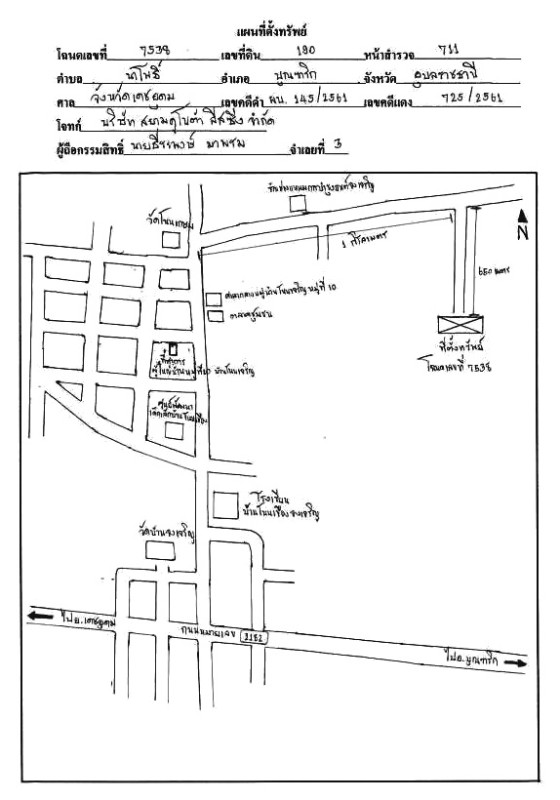 แผนที่ตั้งทรัพย์
โฉนดเลขที่ 7538 เลขที่ดิน 180 หน้าสำรวจ 711
ตำบล นาโพธิ์ อำเภอ บุณฑริก จังหวัด อุบลราชธานี
ศาล จังหวัดเดชอุดม เลขคดีดำ ผบ. 145/2561 เลขคดีแดง 725/2561
โจทก์ บริษัท สยามคูโบต้า ลีสซิ่ง จำกัด
ผู้ถือกรรมสิทธิ์ นายธีระพงษ์ จำเลยที่ 3
วัดโนนเกษม
N
1 กิโลเมตร
650 เมตร
ศาลากลางหมู่บ้านโนนเจริญ หมู่ที่ 10
ตลาดชุมชน
ที่ตั้งทรัพย์
โฉนดเลขที่ 7538
ที่ทำการ
ผู้ใหญ่บ้านหมู่ที่ 10 บ้านโนนเจริญ
ศูนย์พัฒนา
เด็กเล็กบ้านโนนเรือง
โรงเรียน
บ้านโนนเรืองจงเจริญ
วัดบ้านจงเจริญ
ไป อ.เดชอุดม
ถนนหมายเลข 2182
ไป อ.บุณฑริก